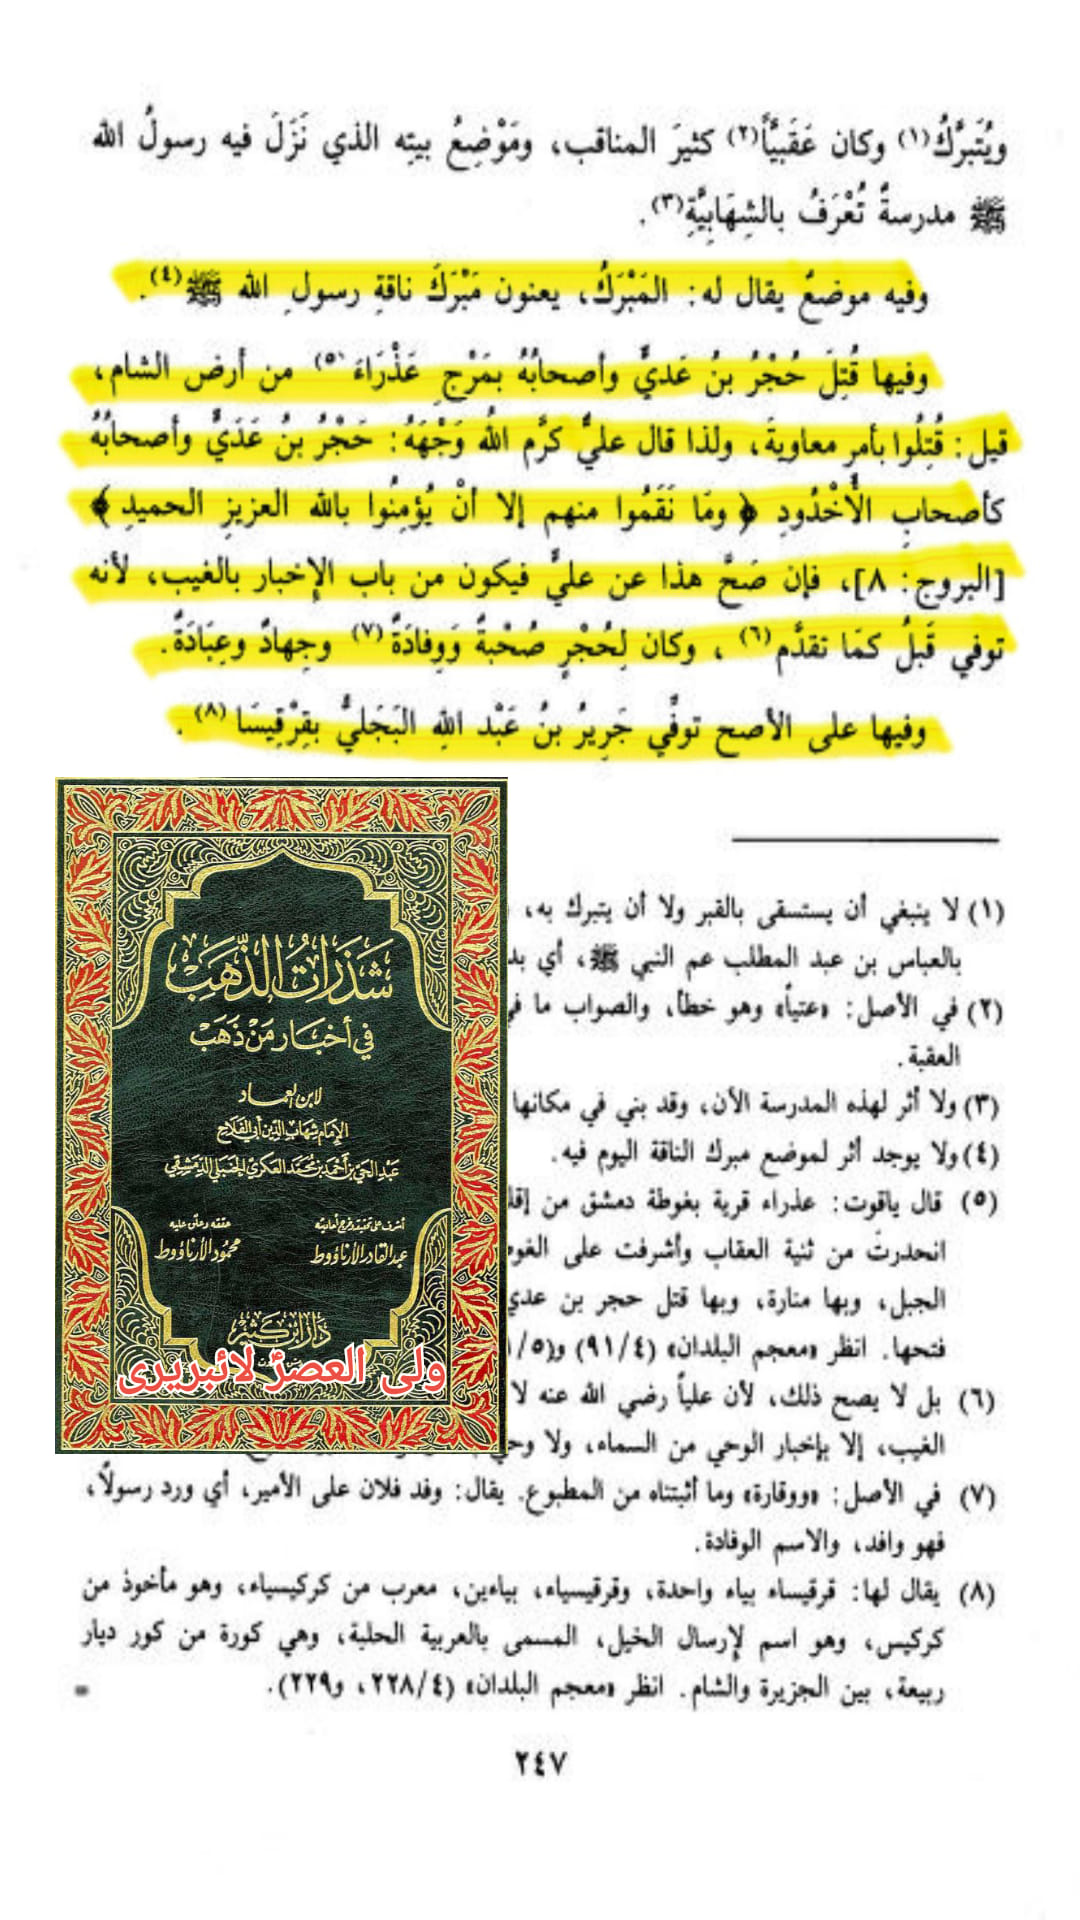 ويُتَبرَّكُ(١) وكان عَقَبيًّا(٢) كثيرَ المناقب، ومَوْضِعُ بيتِه الذي نَزَلَ فيه رسولُ الله
ﷺ مدرسةٌ تُعْرَفُ بالشِهَابِيَّةِ(٣).
وفيه موضعٌ يقال له: المَبْرَكُ، يعنون مَبْرَكَ ناقةِ رسولِ الله ﷺ(٤).
وفيها قُتِلَ حُجْرُ بنُ عَديٍّ وأصحابُهُ بمَرْجِ عَذْرَاءَ(٥) من أرض الشام،
قيل: قُتِلُوا بأمرِ معاويةَ، ولذا قال عليٌّ كرَّم اللهُ وَجْهَهُ: حَجْرُ بنُ عَدَيٍّ وأصحابُهُ
كأصحابِ الأُخْدُودِ ﴿ ومَا نَقَمُوا منهم إلا أنْ يُؤمِنُوا بالله العزيزِ الحميدِ ﴾
[البروج: ٨]، فإن صَحَّ هذا عن عليٍّ فيكون من باب الإخبار بالغيب، لأنه
توفي قَبلُ كمَا تقدَّم(٦)، وكان لِحُجْرٍ صُحْبةٌ وَوِفادَةٌ(٧) وجِهادٌ وعِبَادَةٌ.
وفيها على الأصح توفِّي جَرِيرُ بنُ عَبْد اللهِ البَجَليُّ بقِرْقِيسَا(٨).
(١) لا ينبغي أن يستسقى بالقبر ولا أن يتبرك به،
بالعباس بن عبد المطلب عم النبي ﷺ، أي
(٢) في الأصل: «عتياً» وهو خطأ، والصواب ما
العقبة.
(٣) ولا أثر لهذه المدرسة الآن، وقد بني في مكانها
(٤) ولا يوجد أثر لموضع مبرك الناقة اليوم فيه.
(٥) قال ياقوت: عذراء قرية بغوطة دمشق من
انحدرت من ثنية العقاب وأشرفت على
الجبل، وبها منارة، وبها قتل حجر بن عدي
فتحها. انظر «معجم البلدان» (٩١/٤)
(٦) بل لا يصح ذلك، لأن علياً رضي الله عنه لا
الغيب، إلا بإخبار الوحي من السماء، ولا
(٧) في الأصل: «ووقارة» وما أثبتناه من المطبوع. يقال: وفد فلان على الأمير، أي ورد رسولاً،
فهو وافد، والاسم الوفادة.
(٨) يقال لها: قرقيساء بياء واحدة، وقرقيسياء، بياءين، معرب من كركيسياء، وهو مأخوذ من
كركيس، وهو اسم لإرسال الخيل، المسمى بالعربية الحلبة، وهي كورة من كور ديار
ربيعة، بين الجزيرة والشام. انظر «معجم البلدان» (٢٢٨/٤، و٢٢٩).
٢٤٧
شَذَرَاتُ الذَّهَبِ
في أخبار مَنْ ذَهَبَ
لابن العماد
الإمام شهاب الدين أبي الفلاح
عبد الحي بن أحمد بن محمد العكري الحنبلي الدمشقي
أشرف على تحقيقه وخرج أحاديثه
عبد القادر الأرناؤوط
حققه وعلق عليه
محمود الأرناؤوط
دار ابن كثير
ولی العصرؑ لائبریری